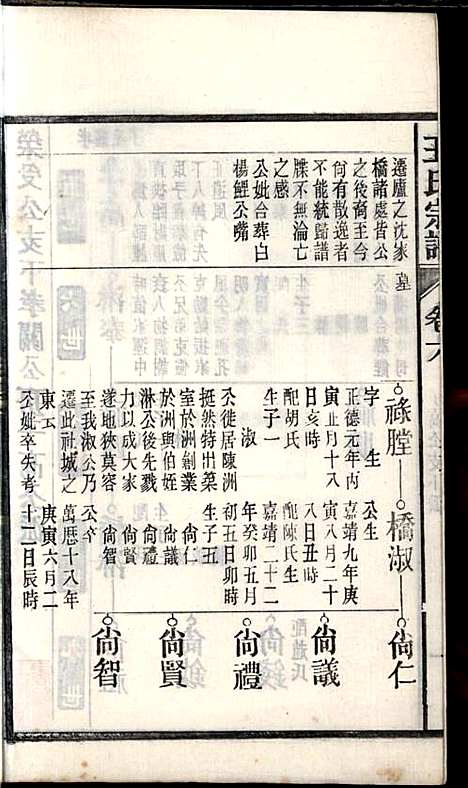 王氏宗譜
卷六
遷廬之沈家
橋諸處皆公
之後裔至今
尙有散逸者
不能統歸譜
牒不無淪亡
之感
公妣合葬白
楊鯉公嘴
墓
祿膛
字 生
正德元年丙
寅正月十八
日亥時
配胡氏
生子一
淑
公徙居陳洲
挺然特出菓
室於洲創業
於洲與伯姪
淋公後先戮
力以成大家
遂地狹莫容
至我淑公乃
遷此社城之
東云
公妣卒失考
橋淑
公生
嘉靖九年庚
寅八月二十
八日丑時
配陳氏生
嘉靖二十二
年癸卯五月
初五日卯時
生子五
尙仁
尙議
尙禮
尙賢
尙智
公卒
萬曆十八年
庚寅六月二
十二日辰時
尙仁
尙議
尙禮
尙賢
尙智